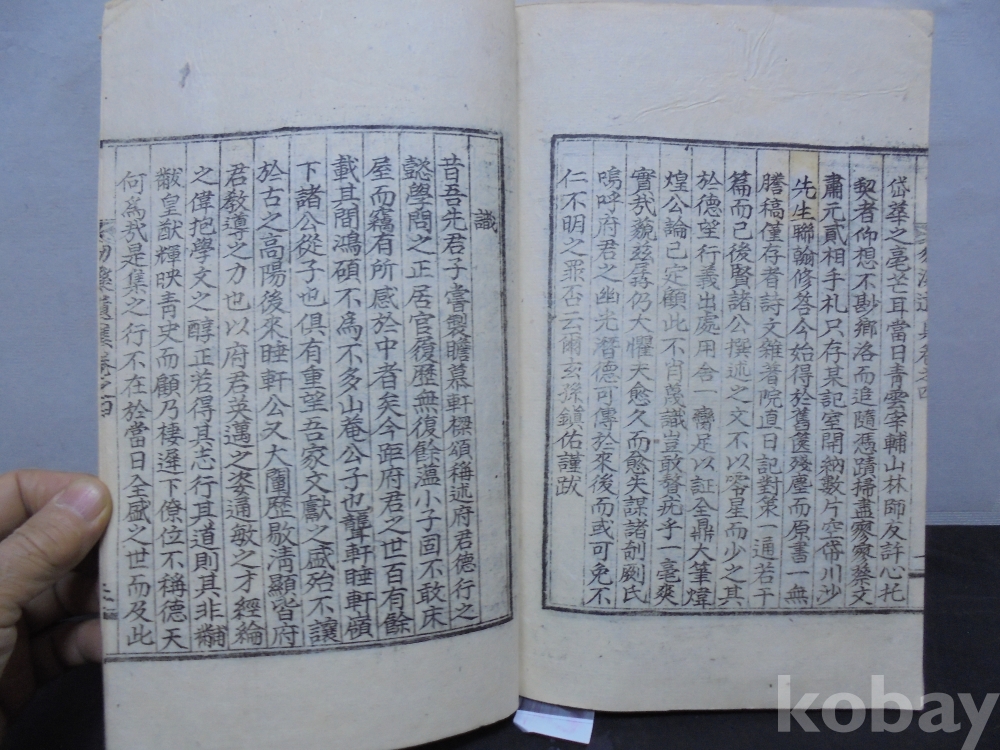 岱華之毫芒耳當日青雲宰輔山林師友許心托
契者仰想不尠鄉洛而追隨憑蹟掃盡寥寥蔡文
肅元貳相手札只存某記室開納數片空帶川沙
先生聯翰修答今始得於舊篋殘塵而原書一無
謄稿僅存者詩文雜著院直日記對策一通若干
篇而已後賢諸公撰述之文不以零星而少之其
於德望行義出處用舍一臠足以証全鼎大筆煒
煌公論已定顧此不肖蔑識豈敢贅疣乎一毫爽
實我貌玆孱仍大懼夫愈久而愈失謀諸剞劂氏
嗚呼府君之幽光潛德可傳於來後而或可免不
仁不明之罪否云爾玄孫鎭佑謹跋
識
昔吾先君子嘗製瞻慕軒樑頌稱述府君德行之
懿學問之正居官復歷無復餘薀小子固不敢床
屋而竊有所感於中者矣今距府君之世百有餘
載其間鴻碩不爲不多山庵公子也聾軒睡軒嶺
下諸公從子也俱有重望吾家文獻之盛殆不讓
於古之高陽後來睡軒公又大闡歷敭淸顯皆府
君敎導之力也以府君英邁之姿通敏之才經綸
之偉抱學文之醇正若得其志行其道則其非黼
黻皇猷輝映靑史而顧乃棲遲下僚位不稱德天
何爲哉是集之行不在於當日全盛之世而及此
遺集卷之四
kobay